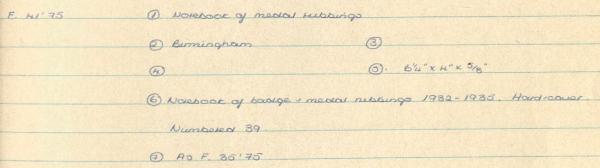 F. 41'75 ① Notebook of medal rubbings
② Birmingham ③
④ ⑤. 6¼" x 4" x ⅝"
⑥ Notebook of badge + medal rubbings 1932-1935. Hard-cover.
Numbered 39.
⑦ As F. 35'75